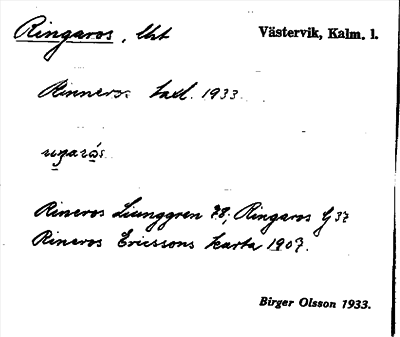 Ringaros, Uht Västervik, Kalm. l.
Rinneros. taxl. 1933.
Rineros Ljunggren 78; Ringaros G 37
Rineros Ericssons karta 1907.
Birger Olsson 1933.